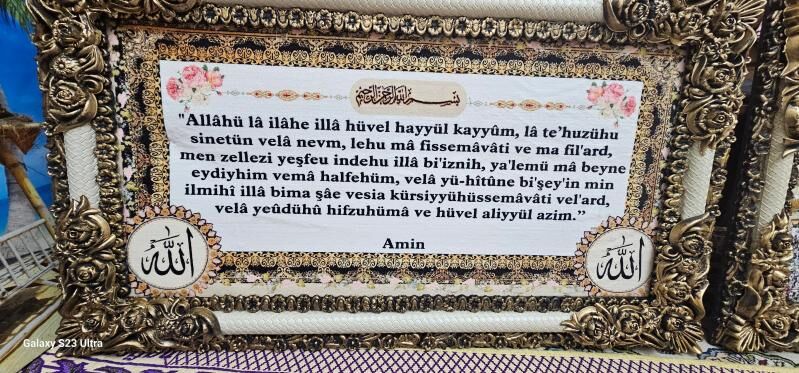 بسم الله الرحمن الرحيم
"Allâhü lâ ilâhe illâ hüvel hayyül kayyûm, lâ te'huzühu
sinetün velâ nevm, lehu mâ fissemâvâti ve ma fil'ard,
men zellezi yeşfeu indehu illâ bi'iznih, ya'lemü mâ beyne
eydiyhim vemâ halfehüm, velâ yü-hîtûne bi'şey'in min
ilmihî illâ bima şâe vesia kürsiyyühüssemâvâti vel'ard,
velâ yeûdühû hifzuhümâ ve hüvel aliyyül azim.”
Amin
الله
الله
Galaxy S23 Ultra